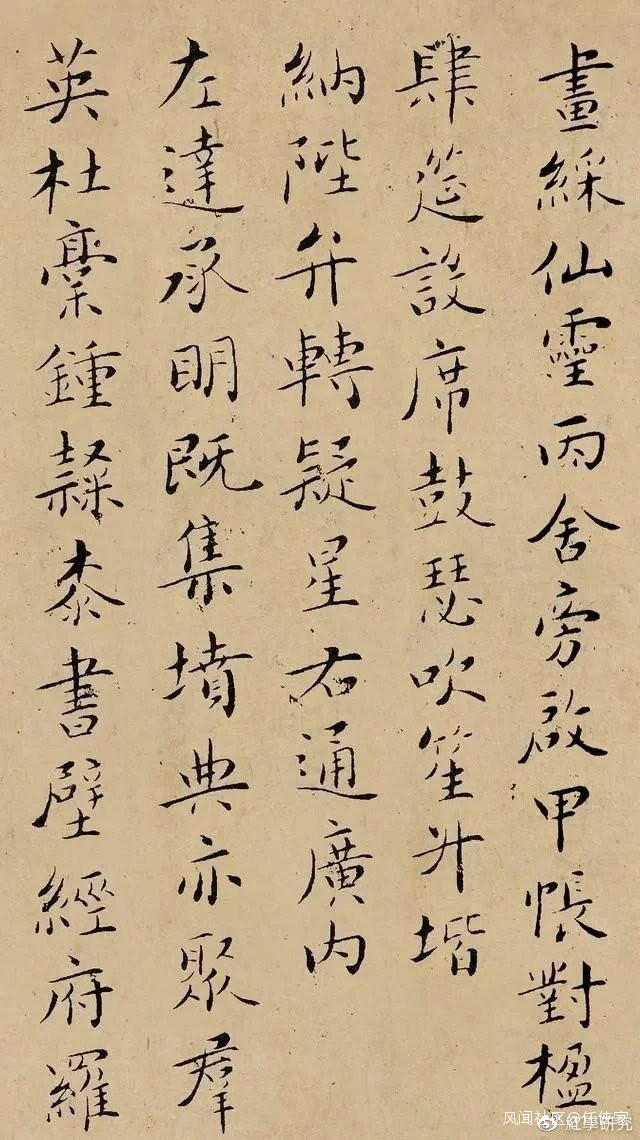 畫綵仙靈丙舍旁啟甲帳對楹
肆筵設席鼓瑟吹笙升堦
納陛弁轉疑星右通廣內
左達承明既集墳典亦聚羣
英杜稾鍾隸桼書壁經府羅
风闻社区@任佚家
紅學研究